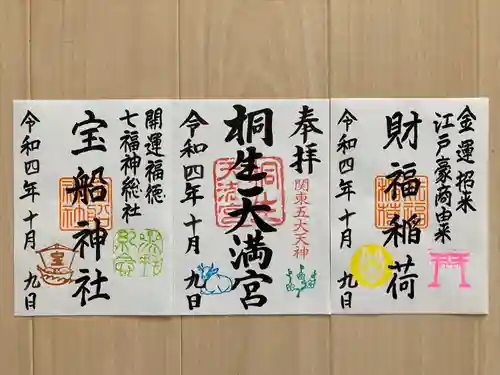 金運招来
江戸豪商由来
財福稲荷
令和四年十月九日
奉拝
関東五大天神
桐生天満宮
令和四年十月九日
開運福徳
七福神総社
宝船神社
令和四年十月九日
宝